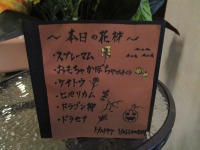 ～本日の花材～
・スプレーマム
・おもちゃかぼちゃ
・ケイトウ
・ヒペリカム
・ドラゴン柳
・ドラセナ
Happy Halloween